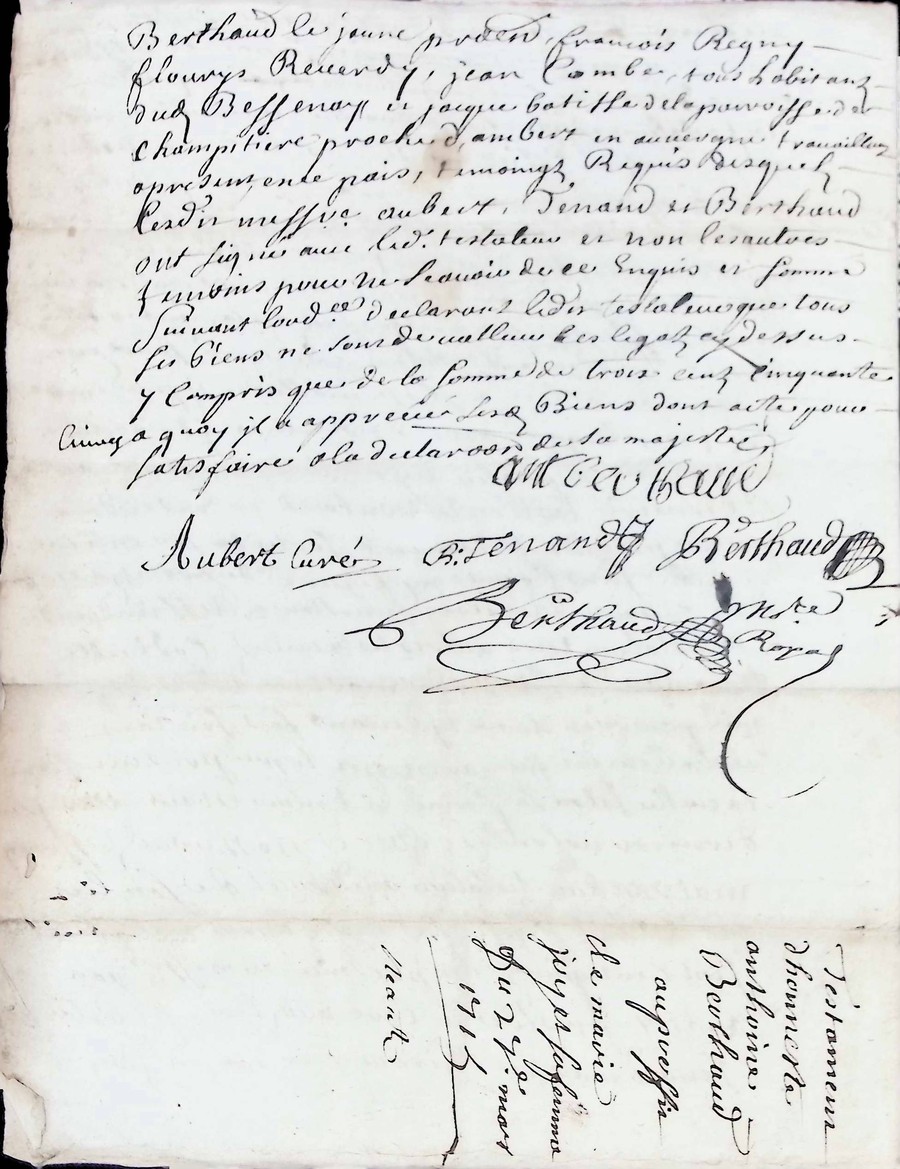 Berthaud le jeune praěn, francois Regny
flourys Reuerdy, jean Combe, tous habitanz
dud Bessenay et jacque batisse de la parroisse de
champitiere proche d'ambert en auuergne trauaillant
apresent en ce païs, temoingz Requis desquelz
lesdit messire aubert, Tenand et Berthaud
ont signé auec led. testateur et non les autres
temoins pour ne scauoir de ce Enquis et somme
Suiuant lord.ce declarant ledit testateur que tous
ses biens ne sont de valleur les legatz cy dessus
y Compris que de la somme de trois cent Cinquante
a quoy il a apprecié sesd Biens dont acte pour
satisfaire a la declaraõn de sa majesté
ant berthaud
Aubert Curé R. Tenand Berthaud
Berthaud Nre
Royal
Testament
dhonneste
anthoine
Berthaud
au proffit
de marie
joyet sa femme
Du 27e mars
1715